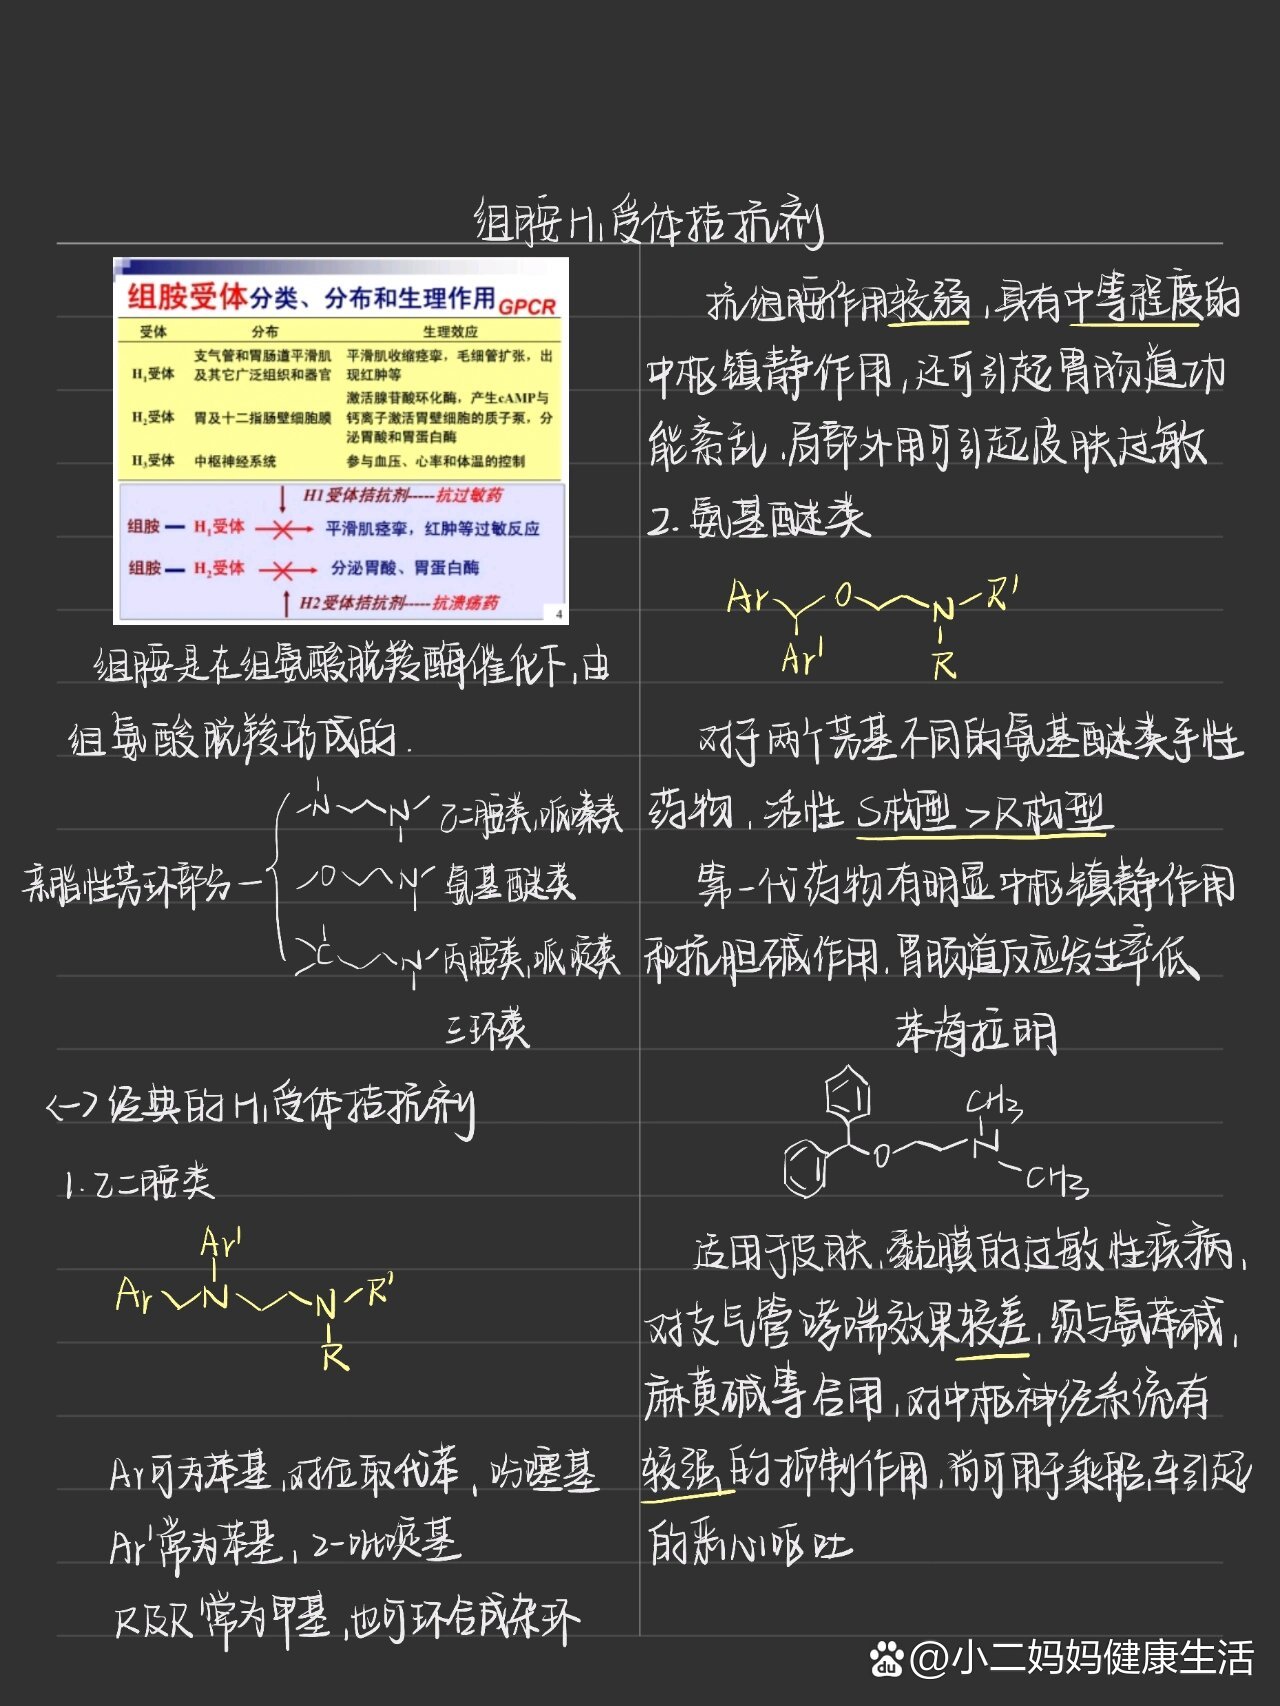 组胺H₁受体拮抗剂
组胺受体分类、分布和生理作用GPCR
受体 分布 生理效应
H₁受体 支气管和胃肠道平滑肌及其它广泛组织和器官 平滑肌收缩痉挛，毛细管扩张，出现红肿等
H₂受体 胃及十二指肠壁细胞膜 激活腺苷酸环化酶，产生cAMP与钙离子激活胃壁细胞的质子泵，分泌胃酸和胃蛋白酶
H₃受体 中枢神经系统 参与血压、心率和体温的控制
H1受体拮抗剂-----抗过敏药
组胺 — H₁受体 平滑肌痉挛，红肿等过敏反应
组胺 — H₂受体 分泌胃酸、胃蛋白酶
H2受体拮抗剂-----抗溃疡药
4
组胺是在组氨酸脱羧酶催化下，由
组氨酸脱羧形成的.
亲脂性芳环部分—
N N 乙二胺类，哌嗪类
O N 氨基醚类
C N 丙胺类，哌啶类
三环类
<一>经典的H₁受体拮抗剂
1.乙二胺类
Ar'
Ar N N R'
R
Ar可为苯基，对位取代苯，吩噻基
Ar'常为苯基，2-吡啶基
R及R'常为甲基，也可环合成杂环
抗组胺作用较弱，具有中等程度的
中枢镇静作用，还可引起胃肠道功
能紊乱、局部外用可引起皮肤过敏
2.氨基醚类
Ar O N R'
Ar' R
对于两个芳基不同的氨基醚类手性
药物，活性S构型>R构型
第一代药物有明显中枢镇静作用
和抗胆碱作用，胃肠道反应发生率低
苯海拉明
CH₃
O N
CH₃
适用于皮肤、黏膜的过敏性疾病，
对支气管哮喘效果较差，须与氨茶碱，
麻黄碱等合用，对中枢神经系统有
较强的抑制作用，尚可用于乘船、车引起
的恶心呕吐
du @小二妈妈健康生活